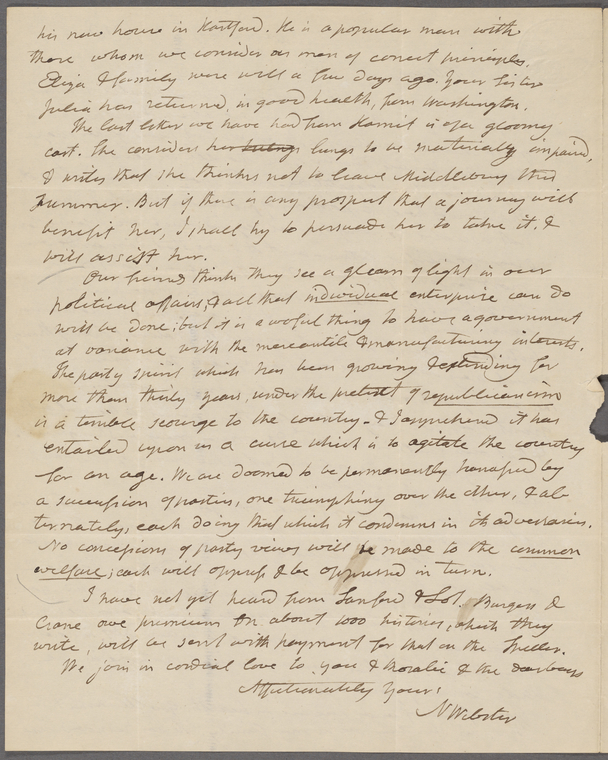 his new house in Hartford. He is a popular man with
those whom we consider as men of correct principles.
Eliza & family were well a few days ago. Your Sister
Julia has returned, in good health, from Washington.
The last letter we have had from Harriet is of a gloomy
cast. She considers her lungs to be materially impaired,
& writes that she thinks not to leave Middlebury this
summer. But if there is any prospect that a journey will
benefit her, I shall try to persuade her to take it, &
will assist her.
Our friends think they see a gleam of light in our
political affairs, & all that individual enterprise can do
will be done; but it is a woful thing to have a government
at variance with the mercantile & manufacturing interests.
The party spirit which has been growing & extending for
more than thirty years, under the pretext of republicanism
is a terrible scourge to the country - & I apprehend it has
entailed upon us a curse which is to agitate the country
for an age. We are doomed to be permanently harassed by
a succession of parties, one triumphing over the other, & al
ternately, each doing that which it condemns in its adversaries.
No concessions of party views will be made to the common
welfare; each will oppress & be oppressed in turn.
I have not yet heard from Sanford & Sol. Burgess &
Crane owe premium on about 1000 histories, which they
write, will be sent with payment for that on the Speller.
We join in cordial love to you & Rosalie & the
Affectionately Yours
N Webster